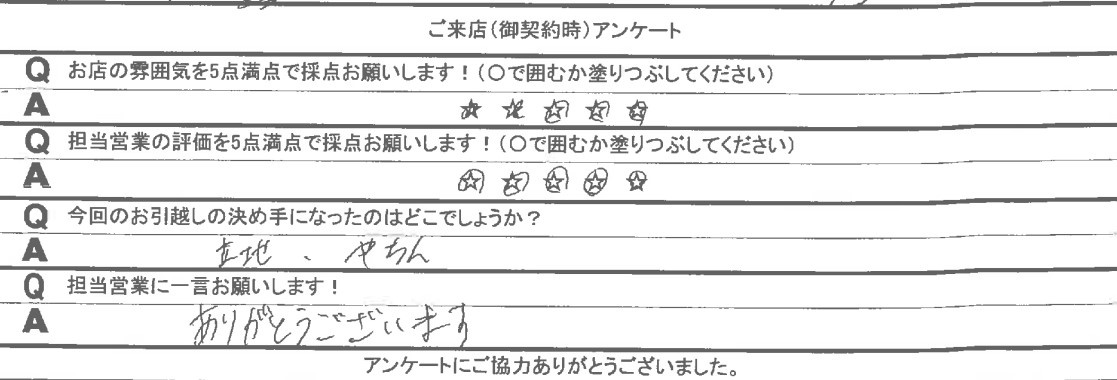 ご来店（御契約時）アンケート
Q お店の雰囲気を5点満点で採点お願いします！（〇で囲むか塗りつぶしてください）
A ★ ★ ☆ ☆ ☆
Q 担当営業の評価を5点満点で採点お願いします！（〇で囲むか塗りつぶしてください）
A ☆ ☆ ☆ ☆ ☆
Q 今回のお引越しの決め手になったのはどこでしょうか？
A 立地、やちん
Q 担当営業に一言お願いします！
A ありがとうございます
アンケートにご協力ありがとうございました。